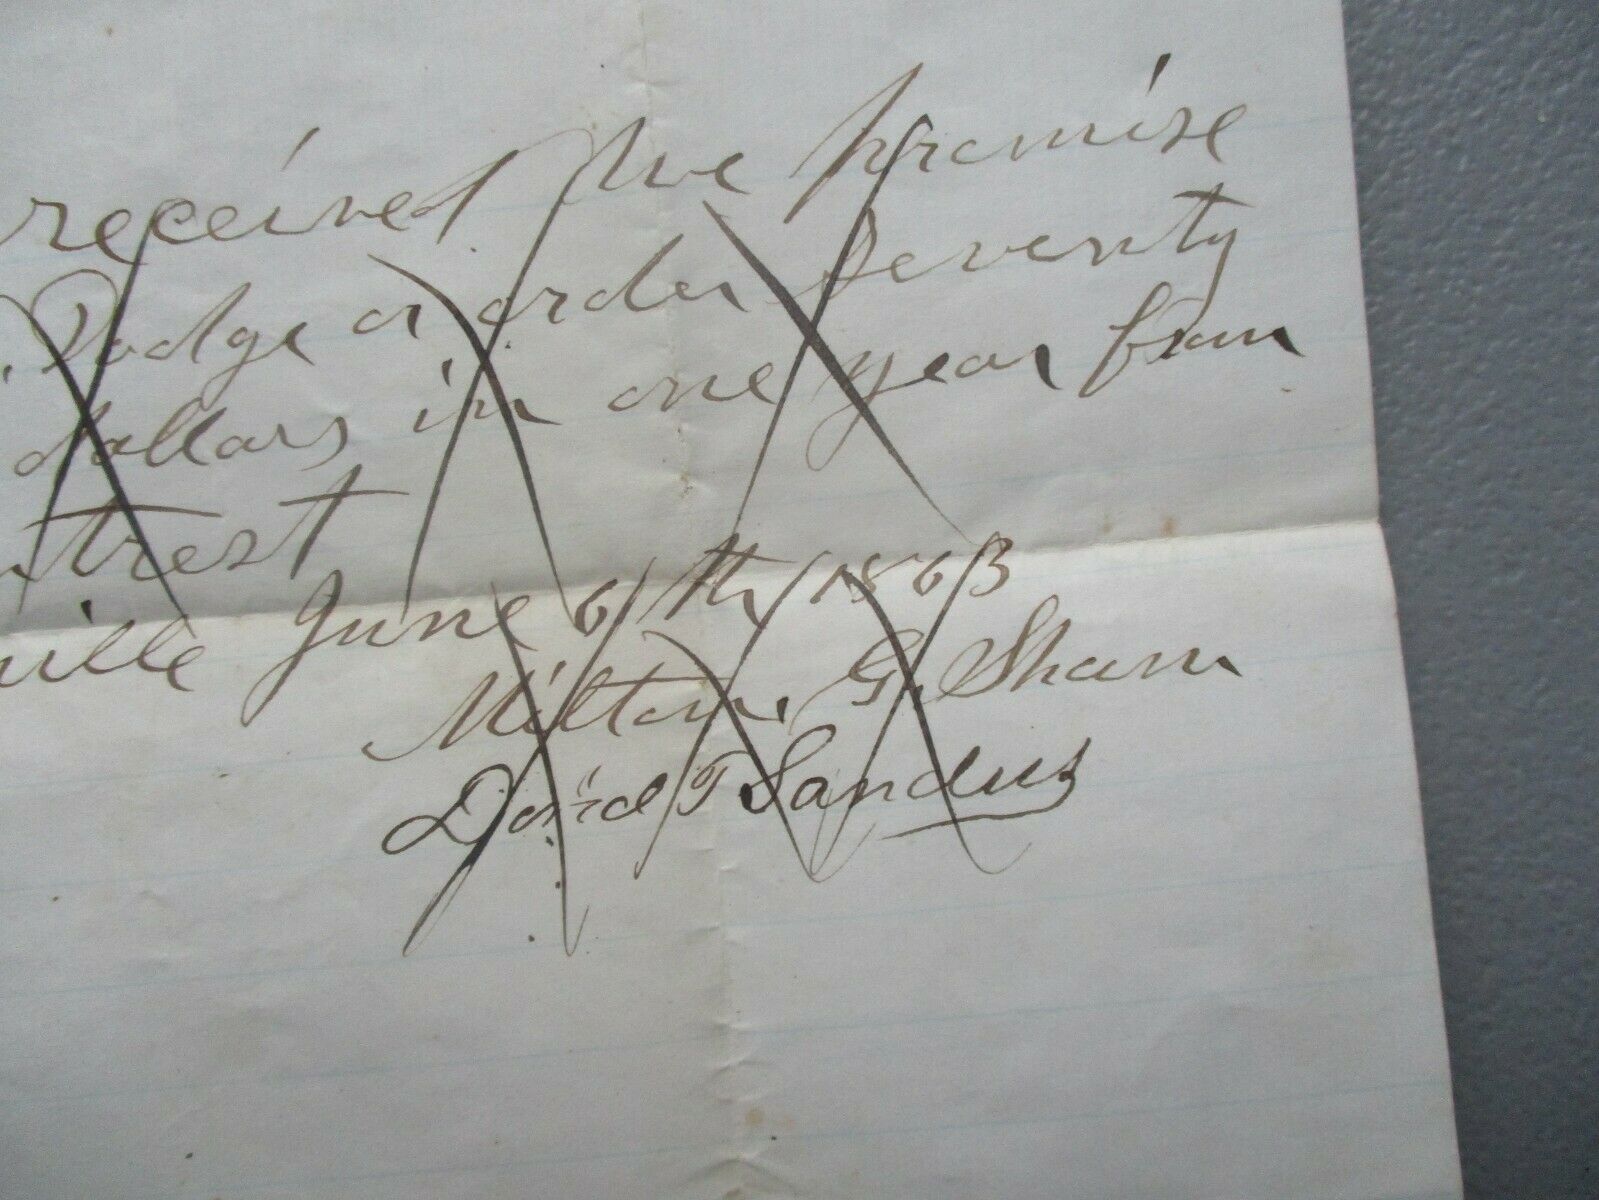 received we promise
Dodge or order Seventy
dollars in one year from
ntrest
ville June 6th 1863
Milton. G. Sham
David T Sandus